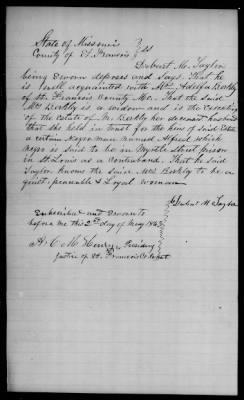 State of Missouri
County of St Francois } SS
Taylor
being sworn deposes and says. That he
is well acquainted with Mrs
of St. Francois County Mo. That the said
Mrs is a widow and is the
of the estate of her deceased husband
that she held in trust for the heirs of said Estate
a certain Negro man named Alfred which
Negro is said to be in Myrtle Street prison
in St Louis as a Contraband. That he said
Taylor knows the said Mrs to be a
quiet peaceable & Loyal woman
M Taylor
Subscribed and Sworn to
before me this 2nd day of May 1863
A. C. M. Henry Presiding
Justice of St Francois Co